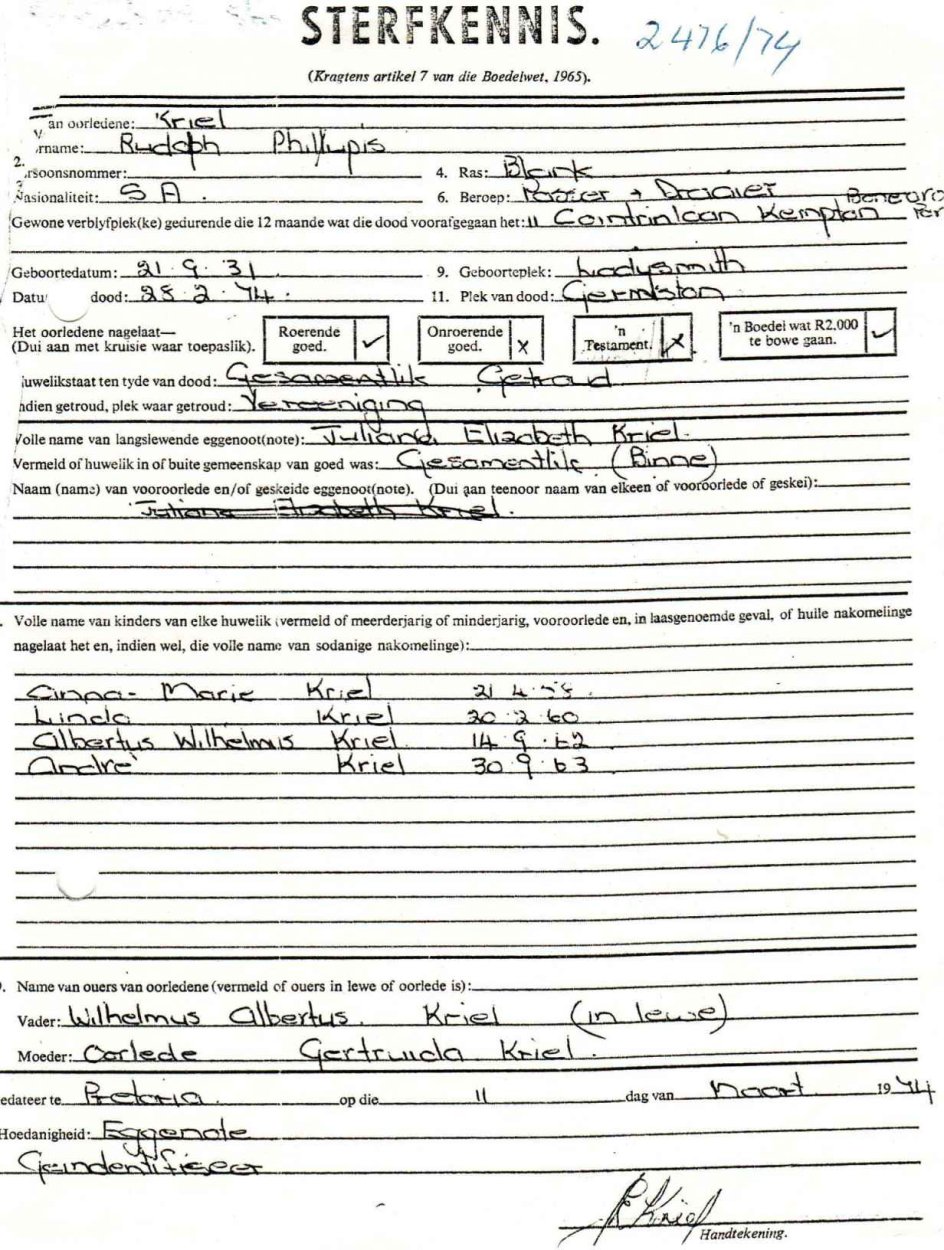 STERFKENNIS. 2476/74
(Kragtens artikel 7 van die Boedelwet, 1965).
an oorledene: Kriel
rname: Rudolph Phillupis
2. rsoonsnommer: 4. Ras: Blank
Nasionaliteit: S A. 6. Beroep: Passer + Draaier
Gewone verblyfplek(ke) gedurende die 12 maande wat die dood voorafgegaan het: 11 Kempton
Geboortedatum: 21.9.31 9. Geboorteplek: Ladysmith
Datu dood: 28.2.74. 11. Plek van dood: Germiston
Het oorledene nagelaat—
(Dui aan met kruisie waar toepaslik).
Roerende goed. ✓
Onroerende goed. x
'n Testament. x
'n Boedel wat R2,000 te bowe gaan. ✓
uwelikstaat ten tyde van dood: Gesamentlik Getroud
ndien getroud, plek waar getroud: Vereeniging
Volle name van langslewende eggenoot(note): Juliana Elizabeth Kriel.
Vermeld of huwelik in of buite gemeenskap van goed was: Gesamentlik (Binne)
Naam (name) van vooroorlede en/of geskeide eggenoot(note). (Dui aan teenoor naam van elkeen of vooroorlede of geskei):
Juliana Elizabeth Kriel.
. Volle name van kinders van elke huwelik (vermeld of meerderjarig of minderjarig, vooroorlede en, in laasgenoemde geval, of hulle nakomelinge
nagelaat het en, indien wel, die volle name van sodanige nakomelinge):
Anna-Marie Kriel 21 4.58.
Linda Kriel 20.2.60
Albertus Wilhelmus Kriel. 14.9.62
Andrè Kriel 30.9.63
. Name van ouers van oorledene (vermeld of ouers in lewe of oorlede is):
Vader: Wilhelmus Albertus. Kriel (in lewe)
Moeder: Oorlede Gertruida Kriel.
edateer te Pretoria. op die 11 dag van Maart 1974
Hoedanigheid: Eggenote
Geindentifiseer
Kriel
Handtekening.